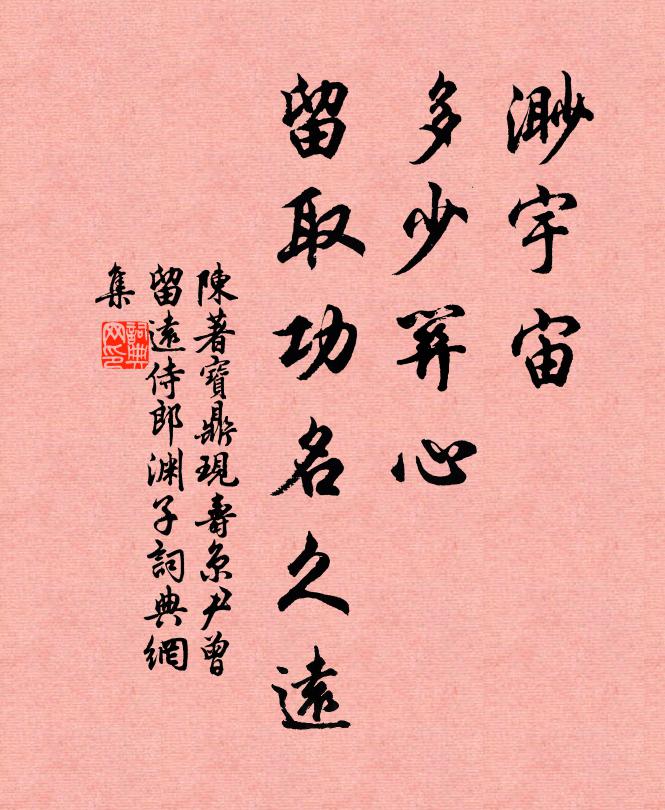 渺宇宙
多少算心
留取功名久遠
陳著寶鼎現壽京尹曾
留遠侍郎淵子詞典網
集
詞典
网印